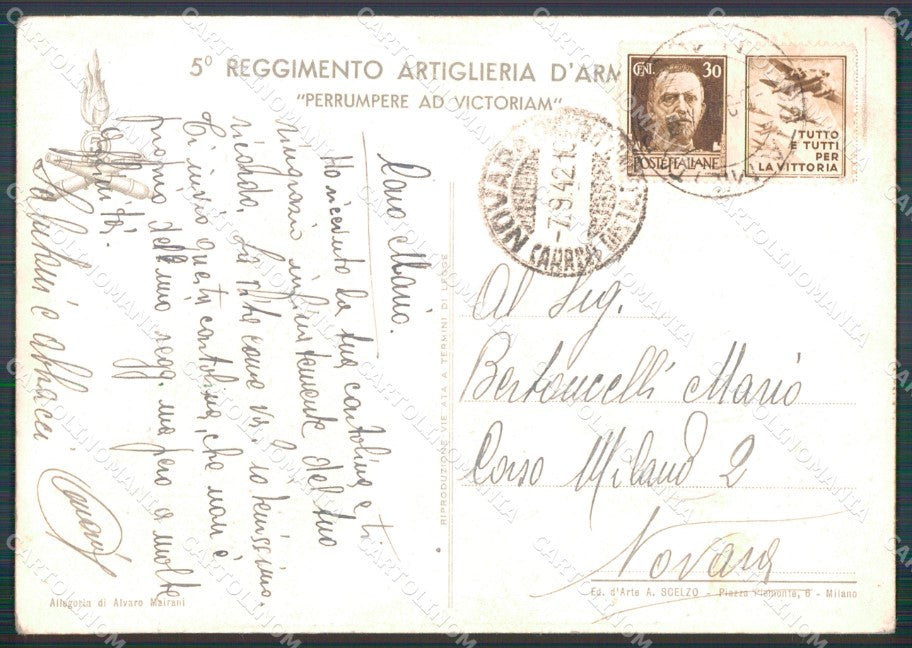 5º REGGIMENTO ARTIGLIERIA D'ARM
"PERRUMPERE AD VICTORIAM"
CENT. 30
POSTE ITALIANE
TUTTO
E TUTTI
PER
LA VITTORIA
-7.9.42.1
Caro Mario.
Ho ricevuto la tua cartolina e ti
ringrazio infinitamente del tuo
ricordo. La come va? io benissimo.
Ti invio questa cartolina, che non è
proprio del mio regg. ma però a molte
affinità.
Saluti e abbracci
RIPRODUZIONE VIETATA A TERMINI DI LEGGE
Al Sig.
Bertoncelli Mario
Corso Milano 2
Novara
Allegoria di Alvaro Mairani
Ed. d'Arte A. SCELZO - Piazza Piemonte, 6 - Milano
CARTOLINOMANIA